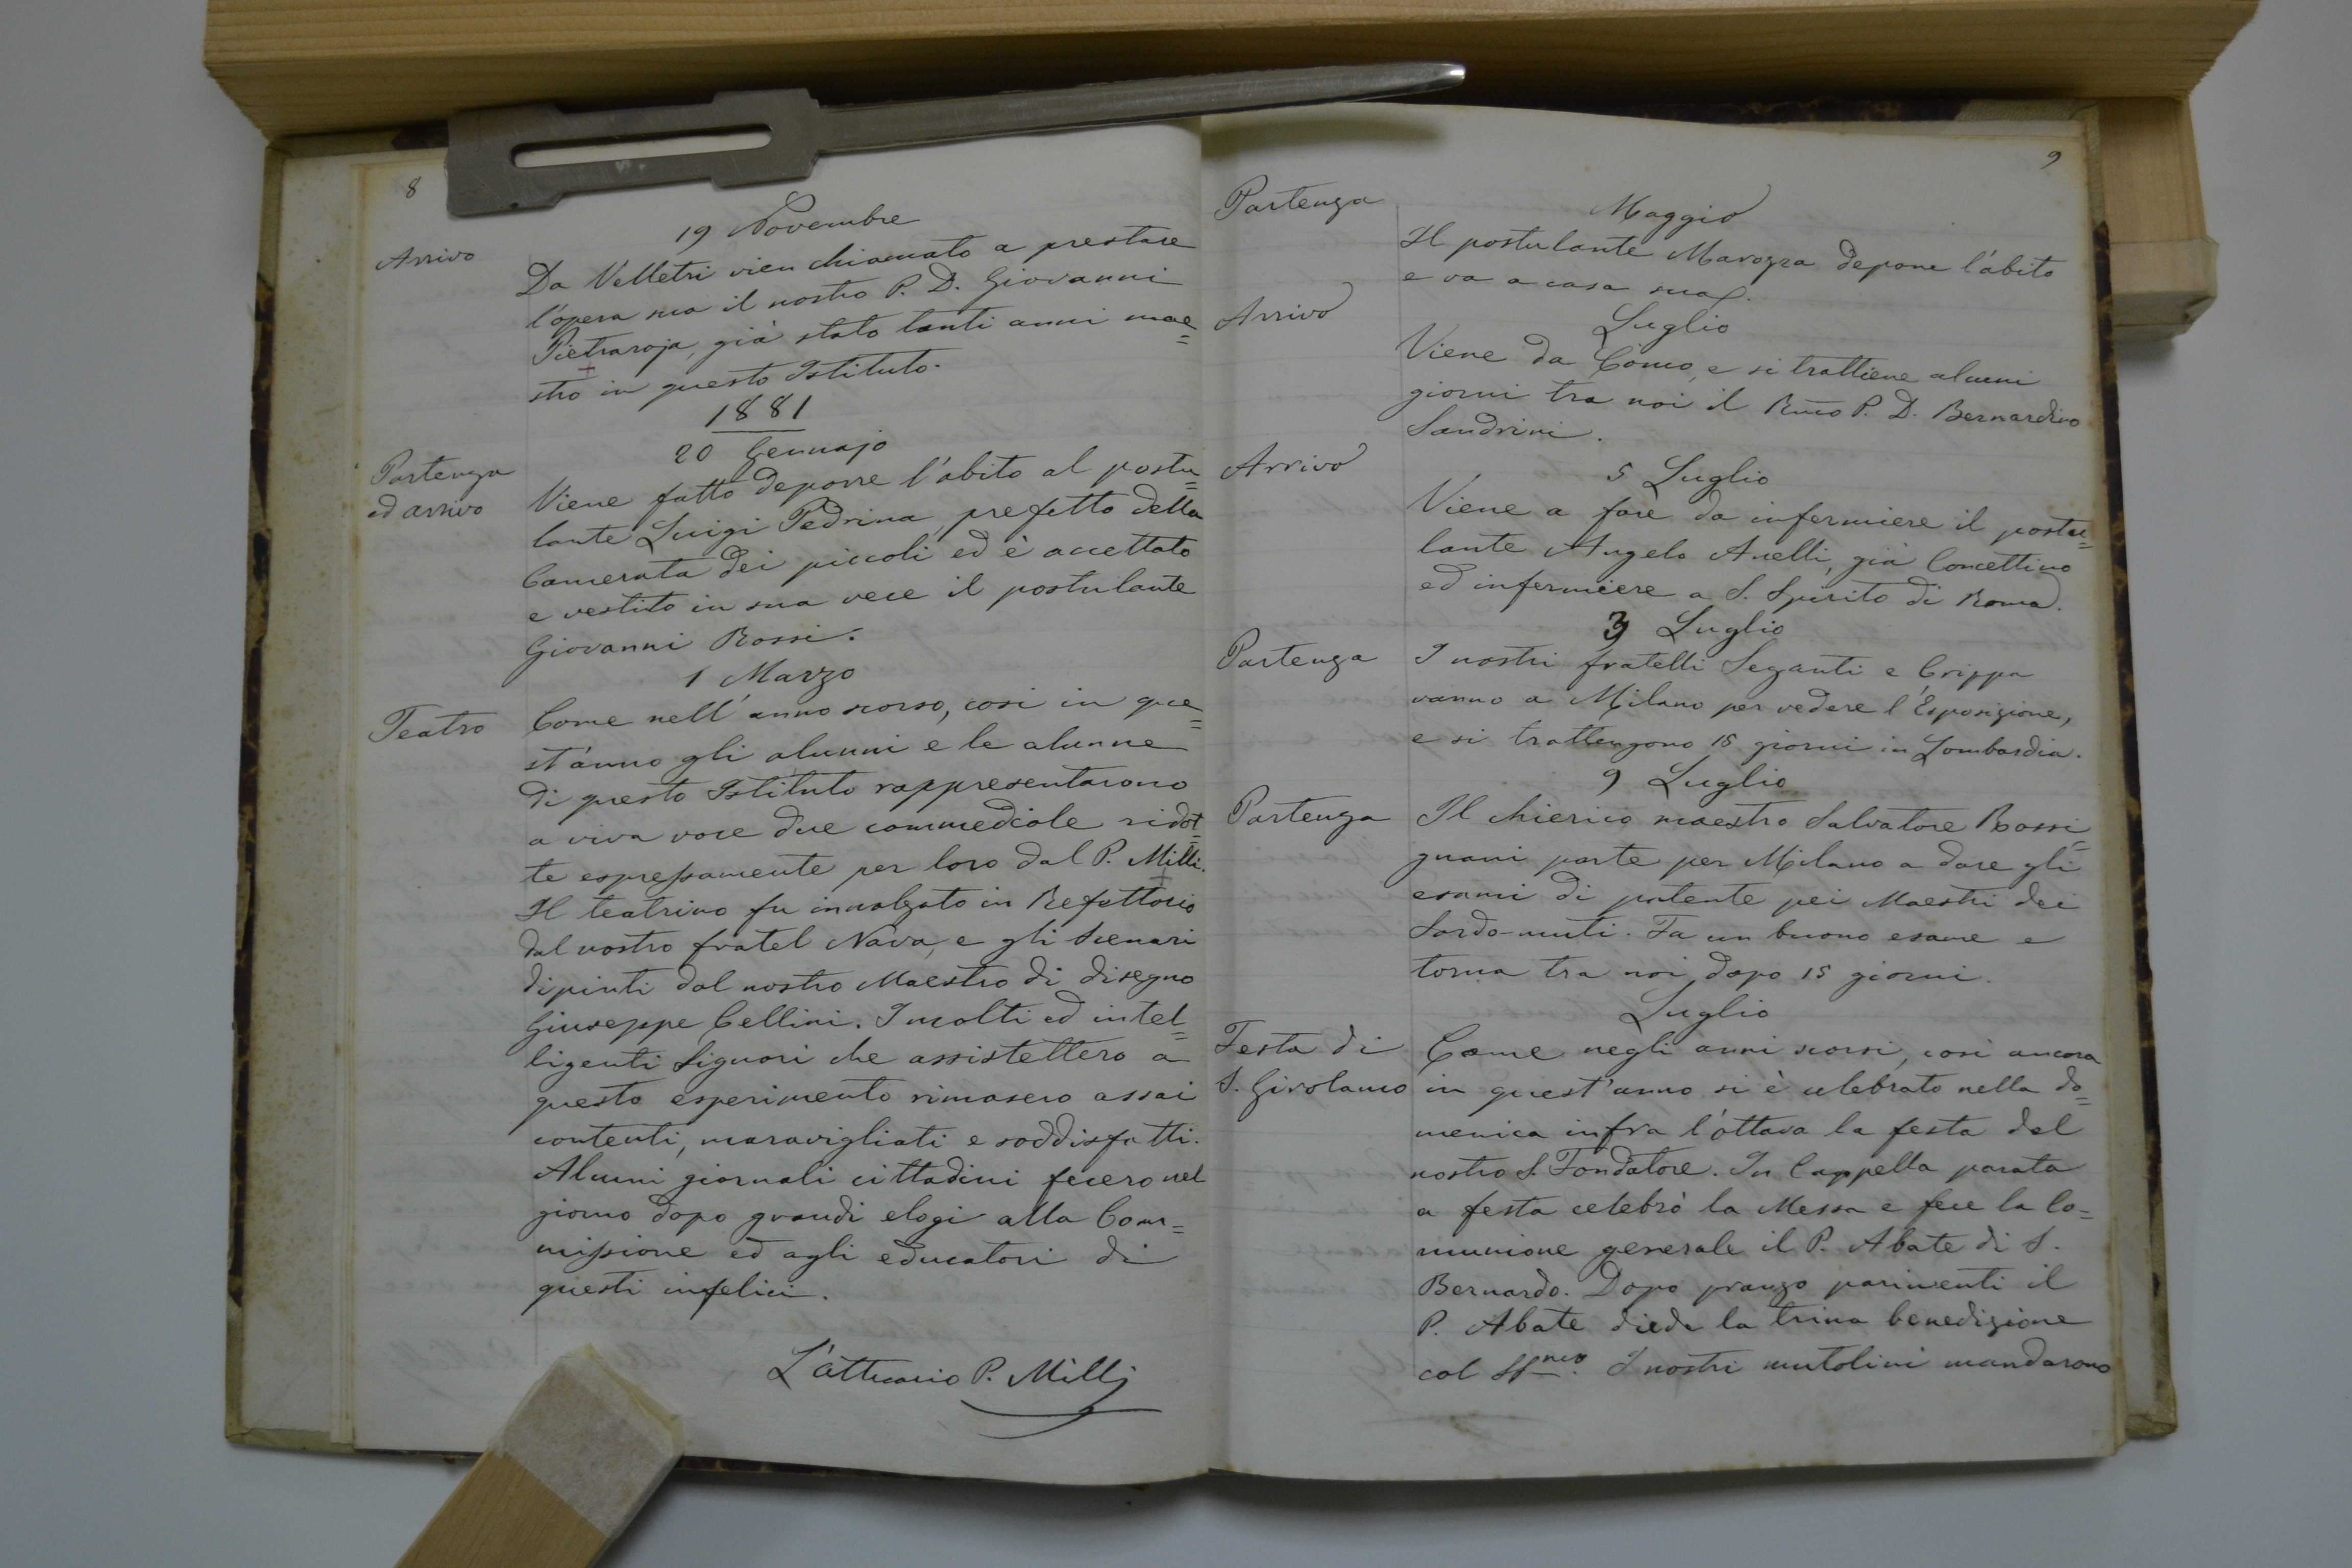 8
19 Novembre
Arrivo
Da Velletri vien chiamato a prestare
l'opera sua il nostro P. D. Giovanni
Pietraroja, già stato tanti anni mae=
stro in questo Istituto.
1881
20 Gennajo
Partenza
ed arrivo
Viene fatto deporre l'abito al postu=
lante Luigi Pedrina, prefetto della
Camerata dei piccoli ed è accettato
e vestito in sua vece il postulante
Giovanni Rossi.
1 Marzo
Teatro
Come nell'anno scorso, così in que=
st'anno gli alunni e le alunne
di questo Istituto rappresentarono
a viva voce due commediole ridot=
te espressamente per loro dal P. Milli.
Il teatrino fu innalzato in Refettorio
dal nostro fratel Nava, e gli scenari
dipinti dal nostro Maestro di disegno
Giuseppe Cellini. I molti ed intel=
ligenti Signori che assistettero a
questo esperimento rimasero assai
contenti, maravigliati e soddisfatti.
Alcuni giornali cittadini fecero nel
giorno dopo grandi elogi alla Com=
missione ed agli educatori di
questi infelici.
L'attuario P. Milli
9
Partenza
Maggio
Il postulante Marozza depone l'abito
e va a casa sua.
Arrivo
Luglio
Viene da Como, e si trattiene alcuni
giorni tra noi il Rmo P. D. Bernardino
Sandrini.
Arrivo
5 Luglio
Viene a fare da infermiere il postu=
lante Angelo Anelli, già Concettino
ed infermiere a S. Spirito di Roma.
Luglio
Partenza
I nostri fratelli Seganti e Crippa
vanno a Milano per vedere l'Esposizione,
e si trattengono 15 giorni in Lombardia.
9 Luglio
Partenza
Il chierico maestro Salvatore Rossi=
gnani parte per Milano a dare gli
esami di patente pei Maestri dei
Sordo-muti. Fa un buono esame e
torna tra noi dopo 15 giorni.
Luglio
Festa di
S. Girolamo
Come negli anni scorsi, così ancora
in quest'anno si è celebrato nella do=
menica infra l'ottava la festa del
nostro S. Fondatore. In Cappella parata
a festa celebrò la Messa e fece la Co=
munione generale il P. Abate di S.
Bernardo. Dopo pranzo parimenti il
P. Abate diede la trina benedizione
col SSmo. I nostri mutolini mandarono